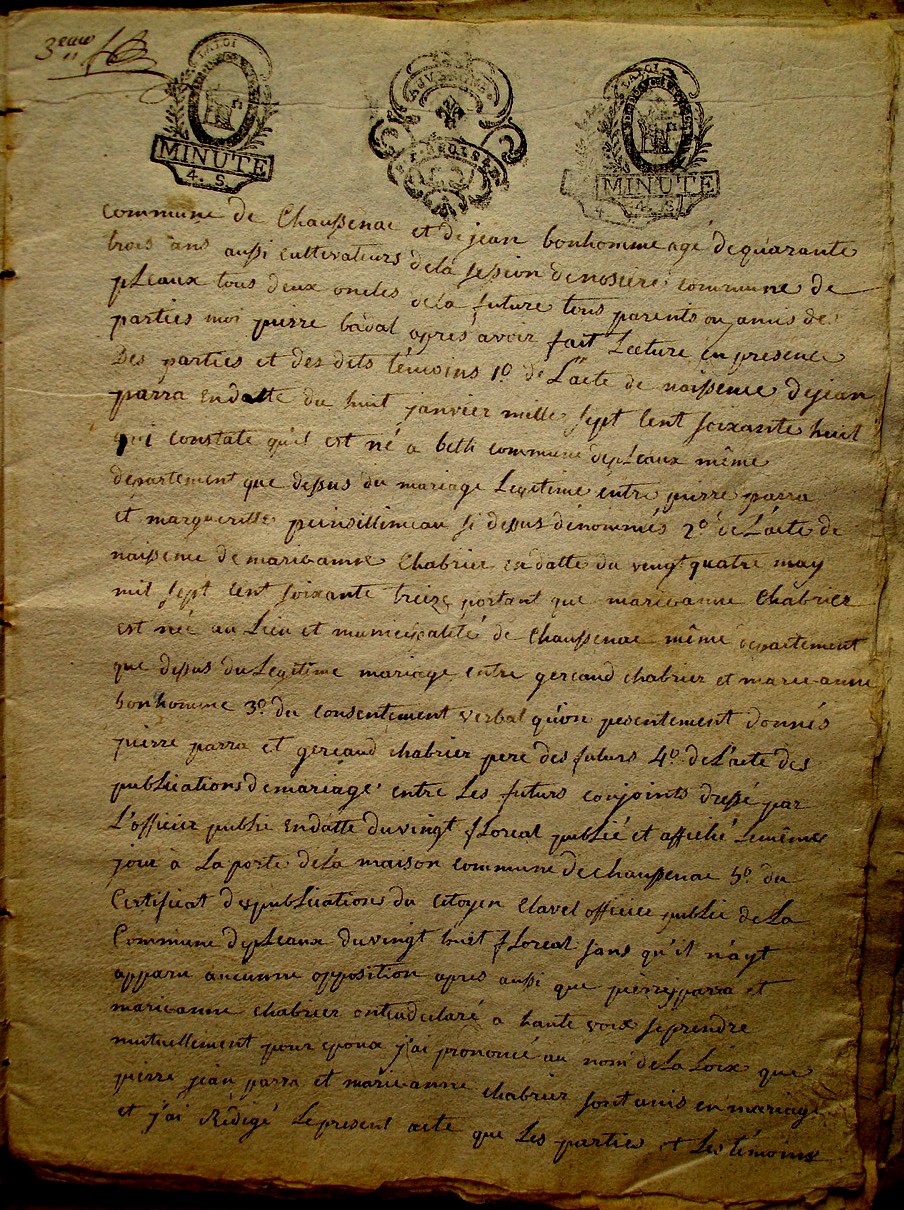 3eme
LA LOI
AUVERGNE
LA LOI
MINUTE
4. S.
MINUTE
4. S.
commune de Chaussenac et de jean bonhomme agé de quarante
trois ans aussi cultivateurs de la session de nosiere commune de
pleaux tous deux oncles de la future tous parents ou amis de
parties moi pierre badal aprés avoir fait Lecture en presence
Des parties et des dits témoins 1º de L'acte de naissence de jean
parra en datte du huit janvier mille sept cent soixante huit
qui constate qu'il est né a beth commune de pleaux même
departement que dessus du mariage Legitime entre pierre parra
et margueritte si dessus dénommés 2º de L'acte de
naissence de marieanne Chabrier en datte du vingt quatre may
mil sept cent soixante treize portant que marieanne Chabrier
est née au Lieu et municipalité de Chaussenac même departement
que dessus du Legitime mariage entre gereaud chabrier et marieanne
bonhomme 3º du consentement verbal qu'on presentement donnés
pierre parra et gereaud chabrier pere des futurs 4º de L'acte des
publications de mariage entre Les futurs conjoints dressé par
L'officier public en datte du vingt floreal publié et affiché le même
jour à La porte de la maison commune de chaussenac 5º du
Certificat des publications du citoyen Clavel officier public de La
Commune de pleaux du vingt huit floreal sans qu'il n'ayt
apparu aucunne opposition apres aussi que pierre parra et
marieanne chabrier ont declaré a haute voix se prendre
mutuellement pour epoux j'ai prononcé au nom de La Loix que
pierre jean parra et marieanne chabrier sont unis en mariage
et j'ai Rédigé Le present acte que Les parties et Les témoins